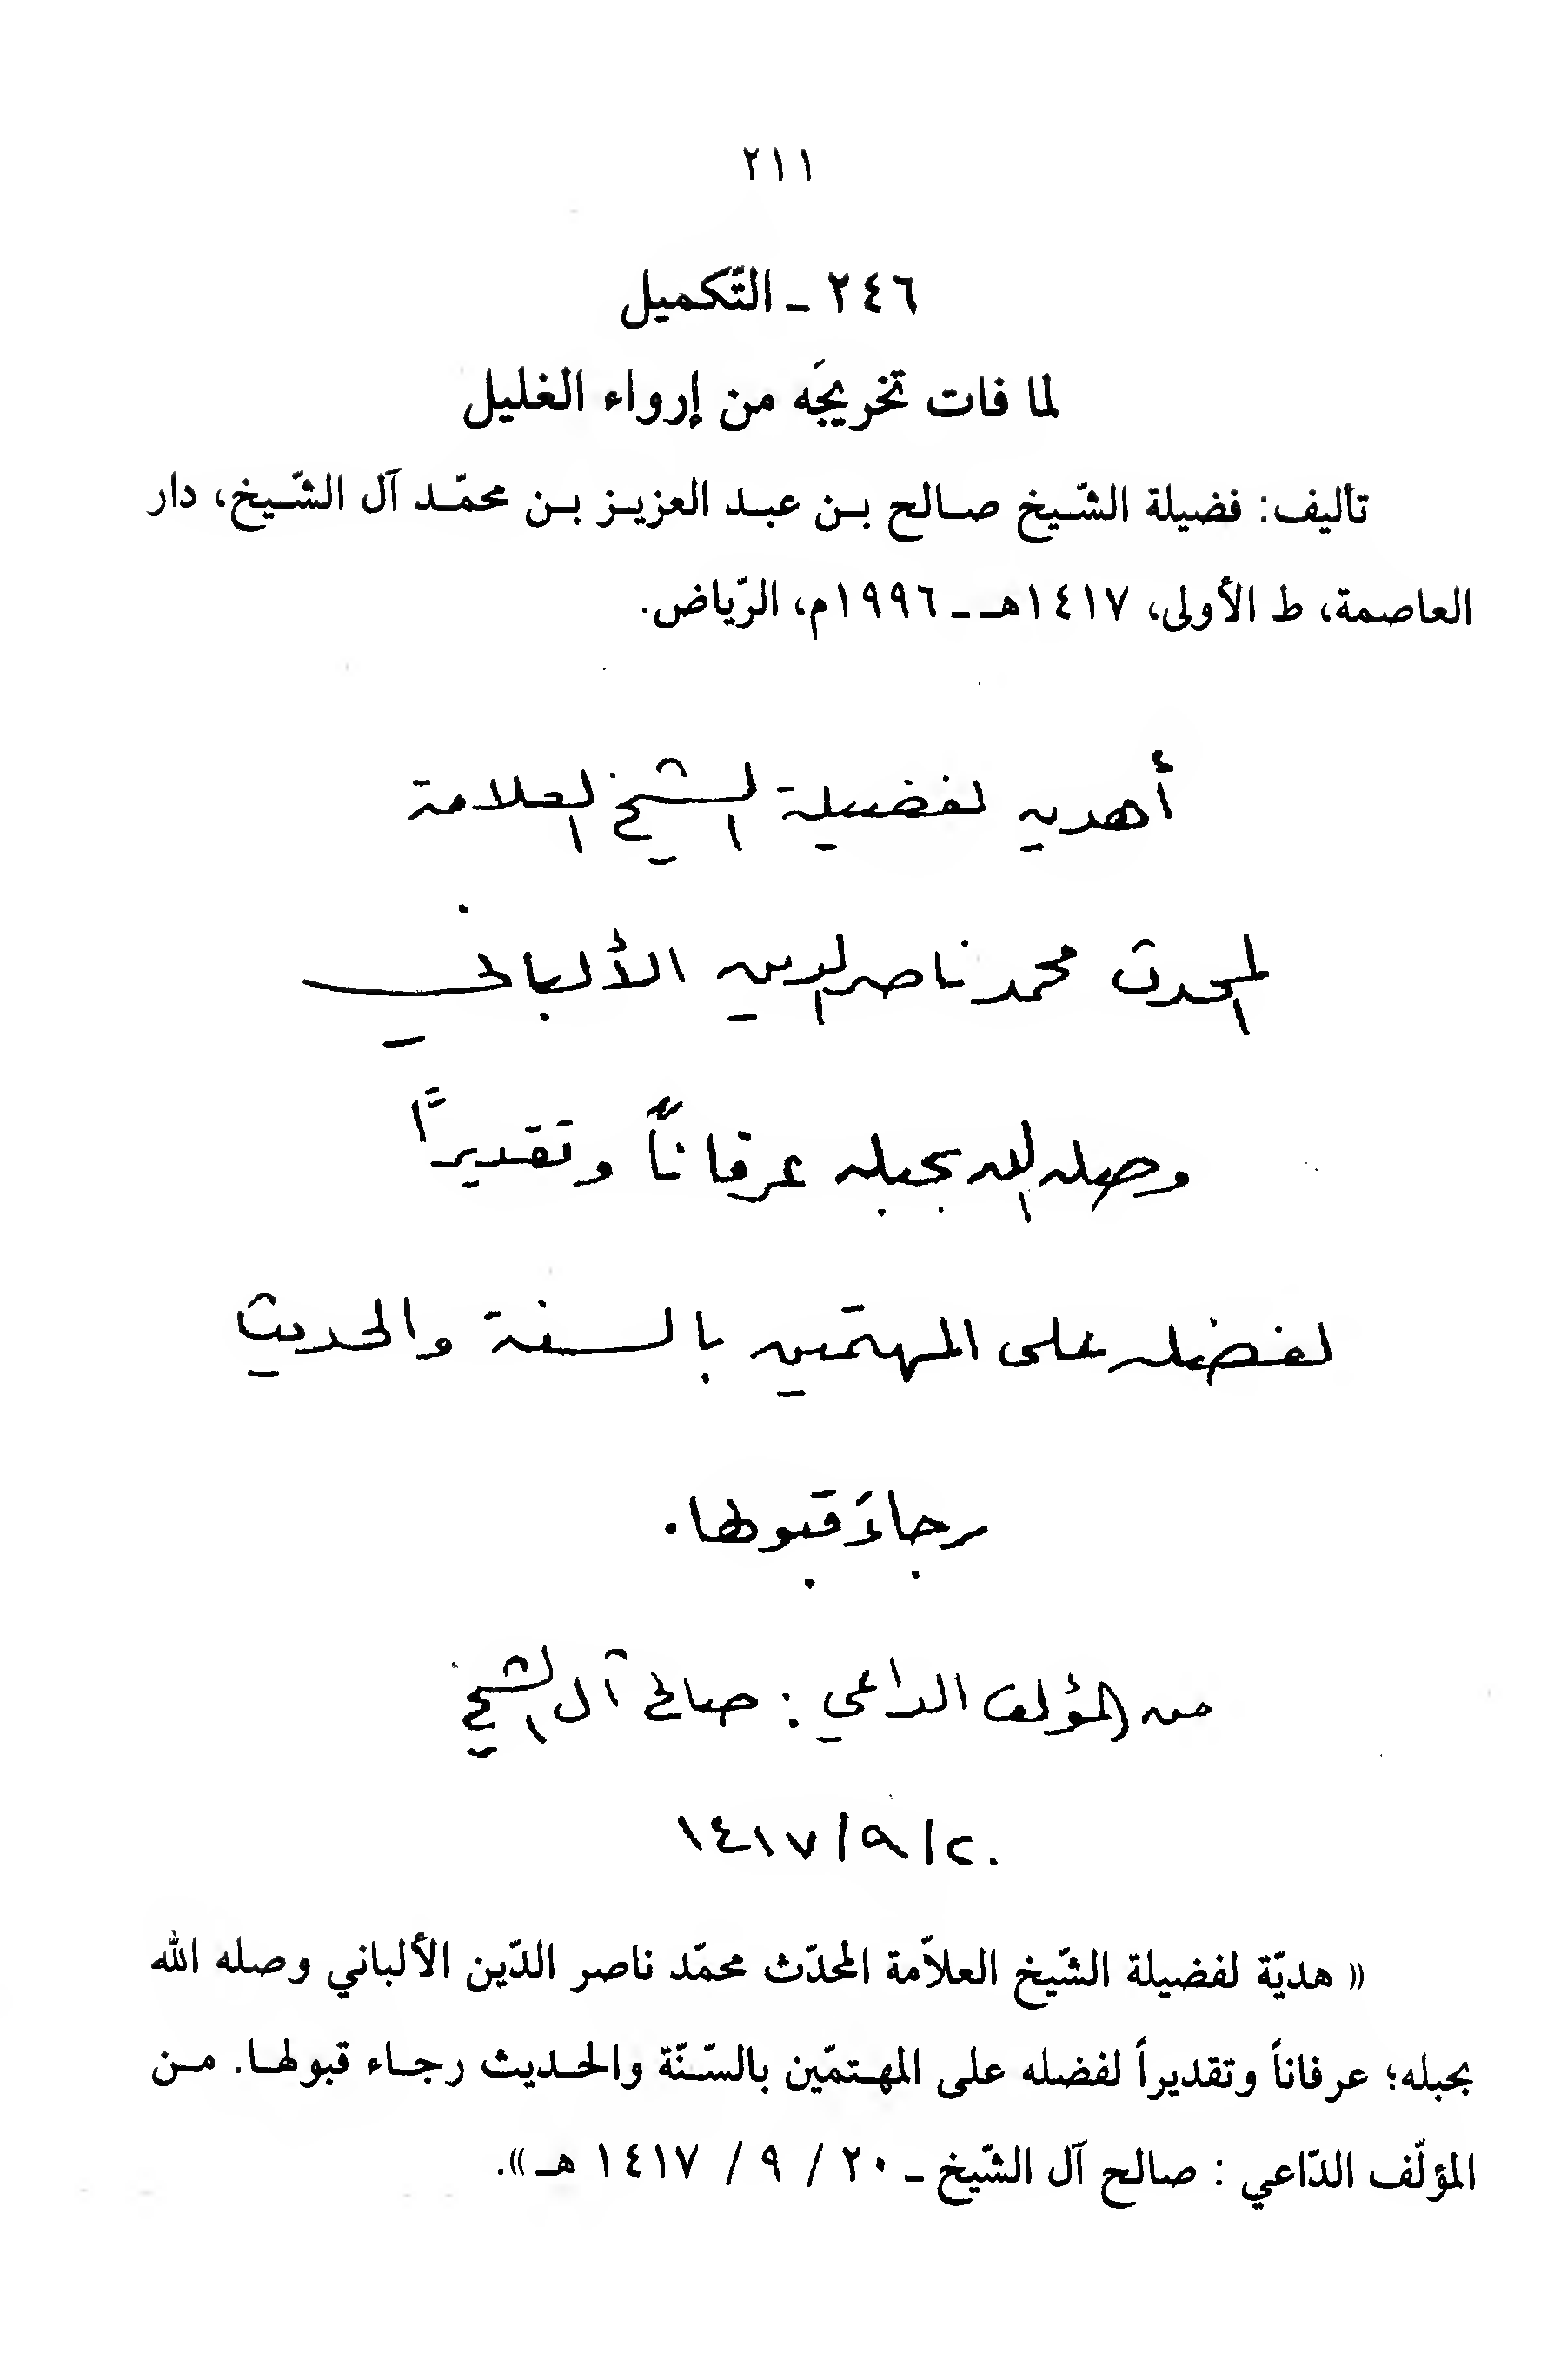 ٢١١
٢٤٦ ـ التّكميل
لما فات تخريجَه من إرواء الغليل
تأليف: فضيلة الشّيخ صالح بن عبد العزيز بن محمّد آل الشّيخ، دار
العاصمة، ط الأولى، ١٤١٧هـ ـ ١٩٩٦م، الرّياض.
أهديه لفضيلة الشيخ العلامة
المحدث محمد ناصر الدين الألباني
وصله الله بحبله عرفاناً وتقديراً
لفضله على المهتمين بالسنة والحديث
رجاءَ قبولها.
من المؤلف الداعي: صالح آل الشيخ
٢٠/٩/١٤١٧
« هديّة لفضيلة الشّيخ العلاّمة المحدّث محمّد ناصر الدّين الألباني وصله الله
بحبله؛ عرفاناً وتقديراً لفضله على المهتمّين بالسّنّة والحديث رجاء قبولها. من
المؤلّف الدّاعي : صالح آل الشّيخ ـ ٢٠ / ٩ / ١٤١٧ هـ».